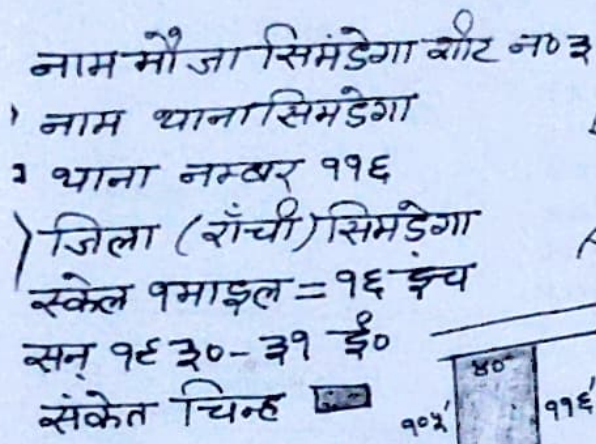 नाम मौजा सिमंडेगा शीट न० ३
नाम थाना सिमडेगा
थाना नम्बर ११६
जिला (राँची) सिमडेगा
स्केल १ माइल = १६ इंच
सन् १९३०-३१ ई०
संकेत चिन्ह
४०
१०५'
११६'